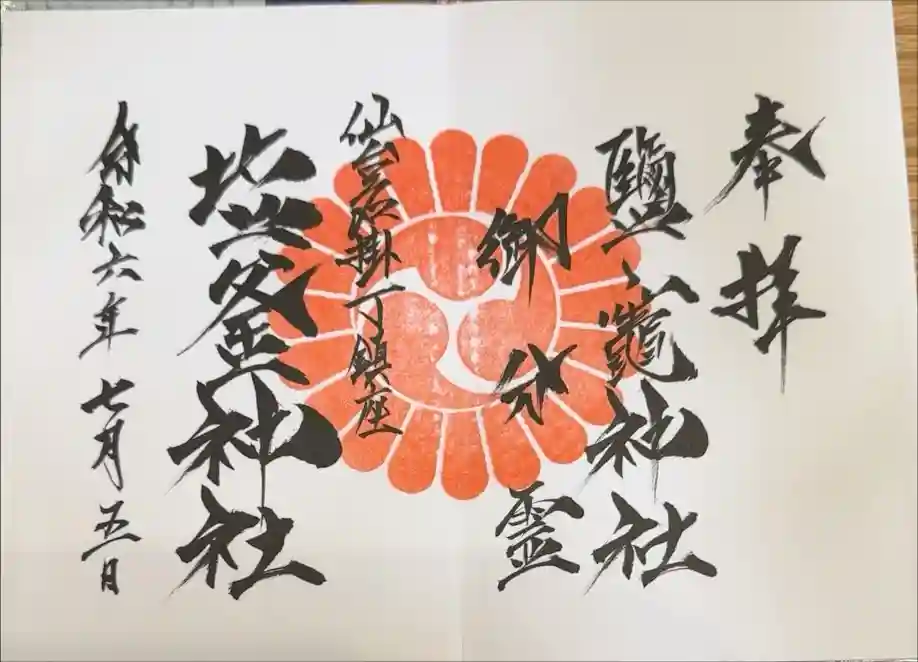 奉拝
鹽竈神社
御分霊
仙台名掛丁鎮座
塩釜神社
令和六年七月五日